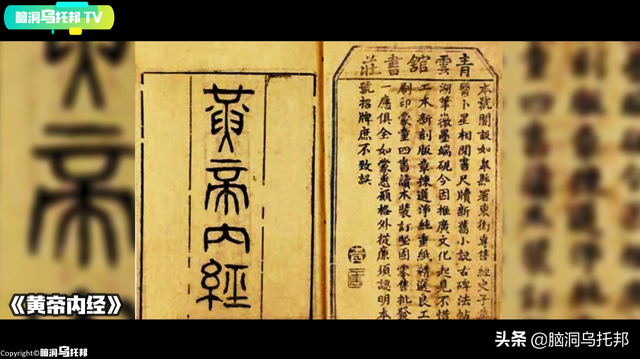 脑洞乌托邦 TV
青雲舘書莊
本號開設如皋縣署東街專售經史子
醫卜星相閒書尺牘新舊小説古碑法帖
湖筆徽墨端硯今因推廣文化起見不惜
工本新刻版章揀選淨純重紙精選良工
刷印蒙童四書讀本裝訂堅固零售批發
一應俱全如蒙惠顧格外從廉須認明本
號招牌庶不致誤
黃帝內經
《黄帝内经》
Copyright©脑洞乌托邦
头条 @脑洞乌托邦